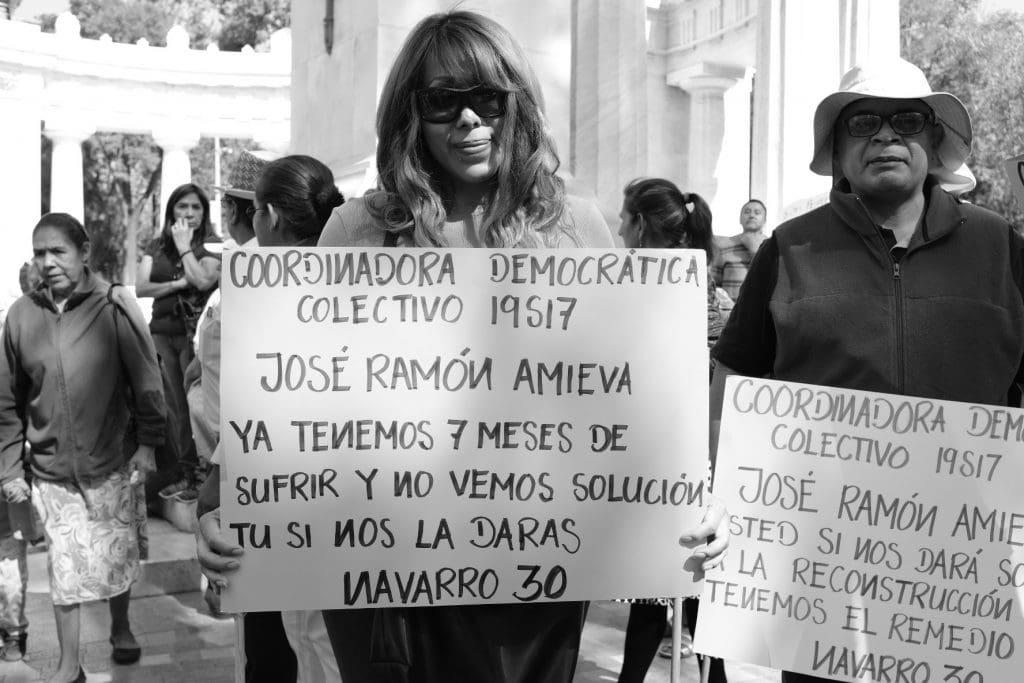 COORDINADORA DEMOCRÁTICA
COLECTIVO 19S17
JOSÉ RAMÓN AMIEVA
YA TENEMOS 7 MESES DE
SUFRIR Y NO VEMOS SOLUCIÓN
TU SI NOS LA DARAS
NAVARRO 30
COORDINADORA DEM
COLECTIVO 19S17
JOSÉ RAMÓN AMIE
STED SI NOS DARÁ SO
LA RECONSTRUCCIÓN
TENEMOS EL REMEDIO
NAVARRO 30